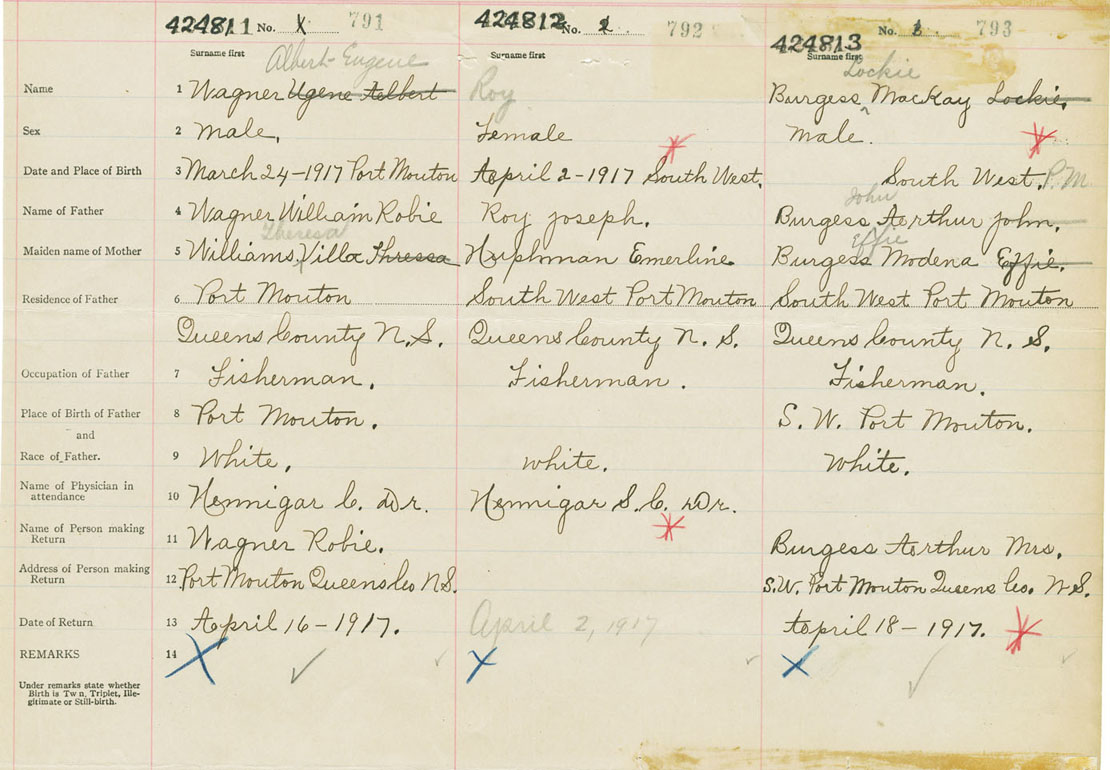 424811 No. 1 791 424812 No. 2 792 424813 No. 3 793
Surname first Surname first Surname first
Albert Eugene Lockie
Name 1 Wagner Ugene Aelbert Roy Burgess, MacKay Lockie.
Sex 2 Male. Female Male.
Date and Place of Birth 3 March 24-1917 Port Mouton April 2-1917 South West. South West. P.M.
John
Name of Father 4 Wagner William Robie Roy Joseph. Burgess Aerthur John.
Theresa Effie
Maiden name of Mother 5 Williams, Villa Thressa Huphman Emerline Burgess Modena Effie.
Residence of Father 6 Port Mouton South West Port Mouton South West Port Mouton
Queens County N.S. Queens County N. S. Queens County N. S.
Occupation of Father 7 Fisherman. Fisherman. Fisherman.
Place of Birth of Father 8 Port Mouton. S. W. Port Mouton.
and
Race of Father. 9 White. White. White.
Name of Physician in
attendance 10 Hennigar C. Dr. Hennigar S. C. Dr.
Name of Person making
Return 11 Wagner Robie. Burgess Aerthur Mrs.
Address of Person making
Return 12 Port Mouton Queens Co N.S. S.W. Port Mouton Queens Co. N.S.
Date of Return 13 April 16-1917. April 2, 1917 April 18-1917.
REMARKS 14
Under remarks state whether
Birth is Tw n, Triplet, Ille-
gitimate or Still-birth.